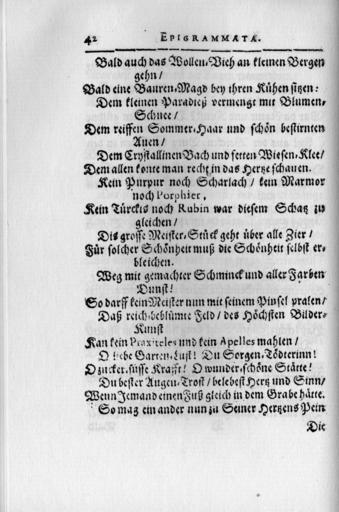 42 EPIGRAMMATA.
Bald auch das Wollen-Vieh an kleinen Bergen
gehn/
Bald eine Bauren-Magd bey ihren Kühen sitzen:
Dem kleinen Paradieß vermengt mit Blumen-
Schnee/
Dem reiffen Sommer-Haar und schön bestirnten
Auen/
Dem Crystallinen Bach und fetten Wiesen-Klee/
Dem allen konte man recht in das Hertze schauen.
Kein Purpur noch Scharlach/ kein Marmor
noch Porphier,
Kein Türckis noch Rubin war diesem Schatz zu
gleichen/
Dis grosse Meister-Stück geht über alle Zier/
Für solcher Schönheit muß die Schönheit selbst er-
bleichen.
Weg mit gemachter Schminck und aller Farben
Dunst!
So darff kein Meister nun mit seinem Pinsel pralen/
Daß reich-beblümte Feld/ des Höchsten Bilder-
Kunst
Kan kein Praxiteles und kein Apelles mahlen/
O liebe Garten-Lust! Du Sorgen-Tödterinn!
O zucker-süsse Krafft! O wunder-schöne Stätte!
Du bester Augen-Trost/ belebest Hertz und Sinn/
Wenn Jemand einen Fuß gleich in dem Grabe hätte.
So mag ein ander nun zu Seiner Hertzens Pein
Die